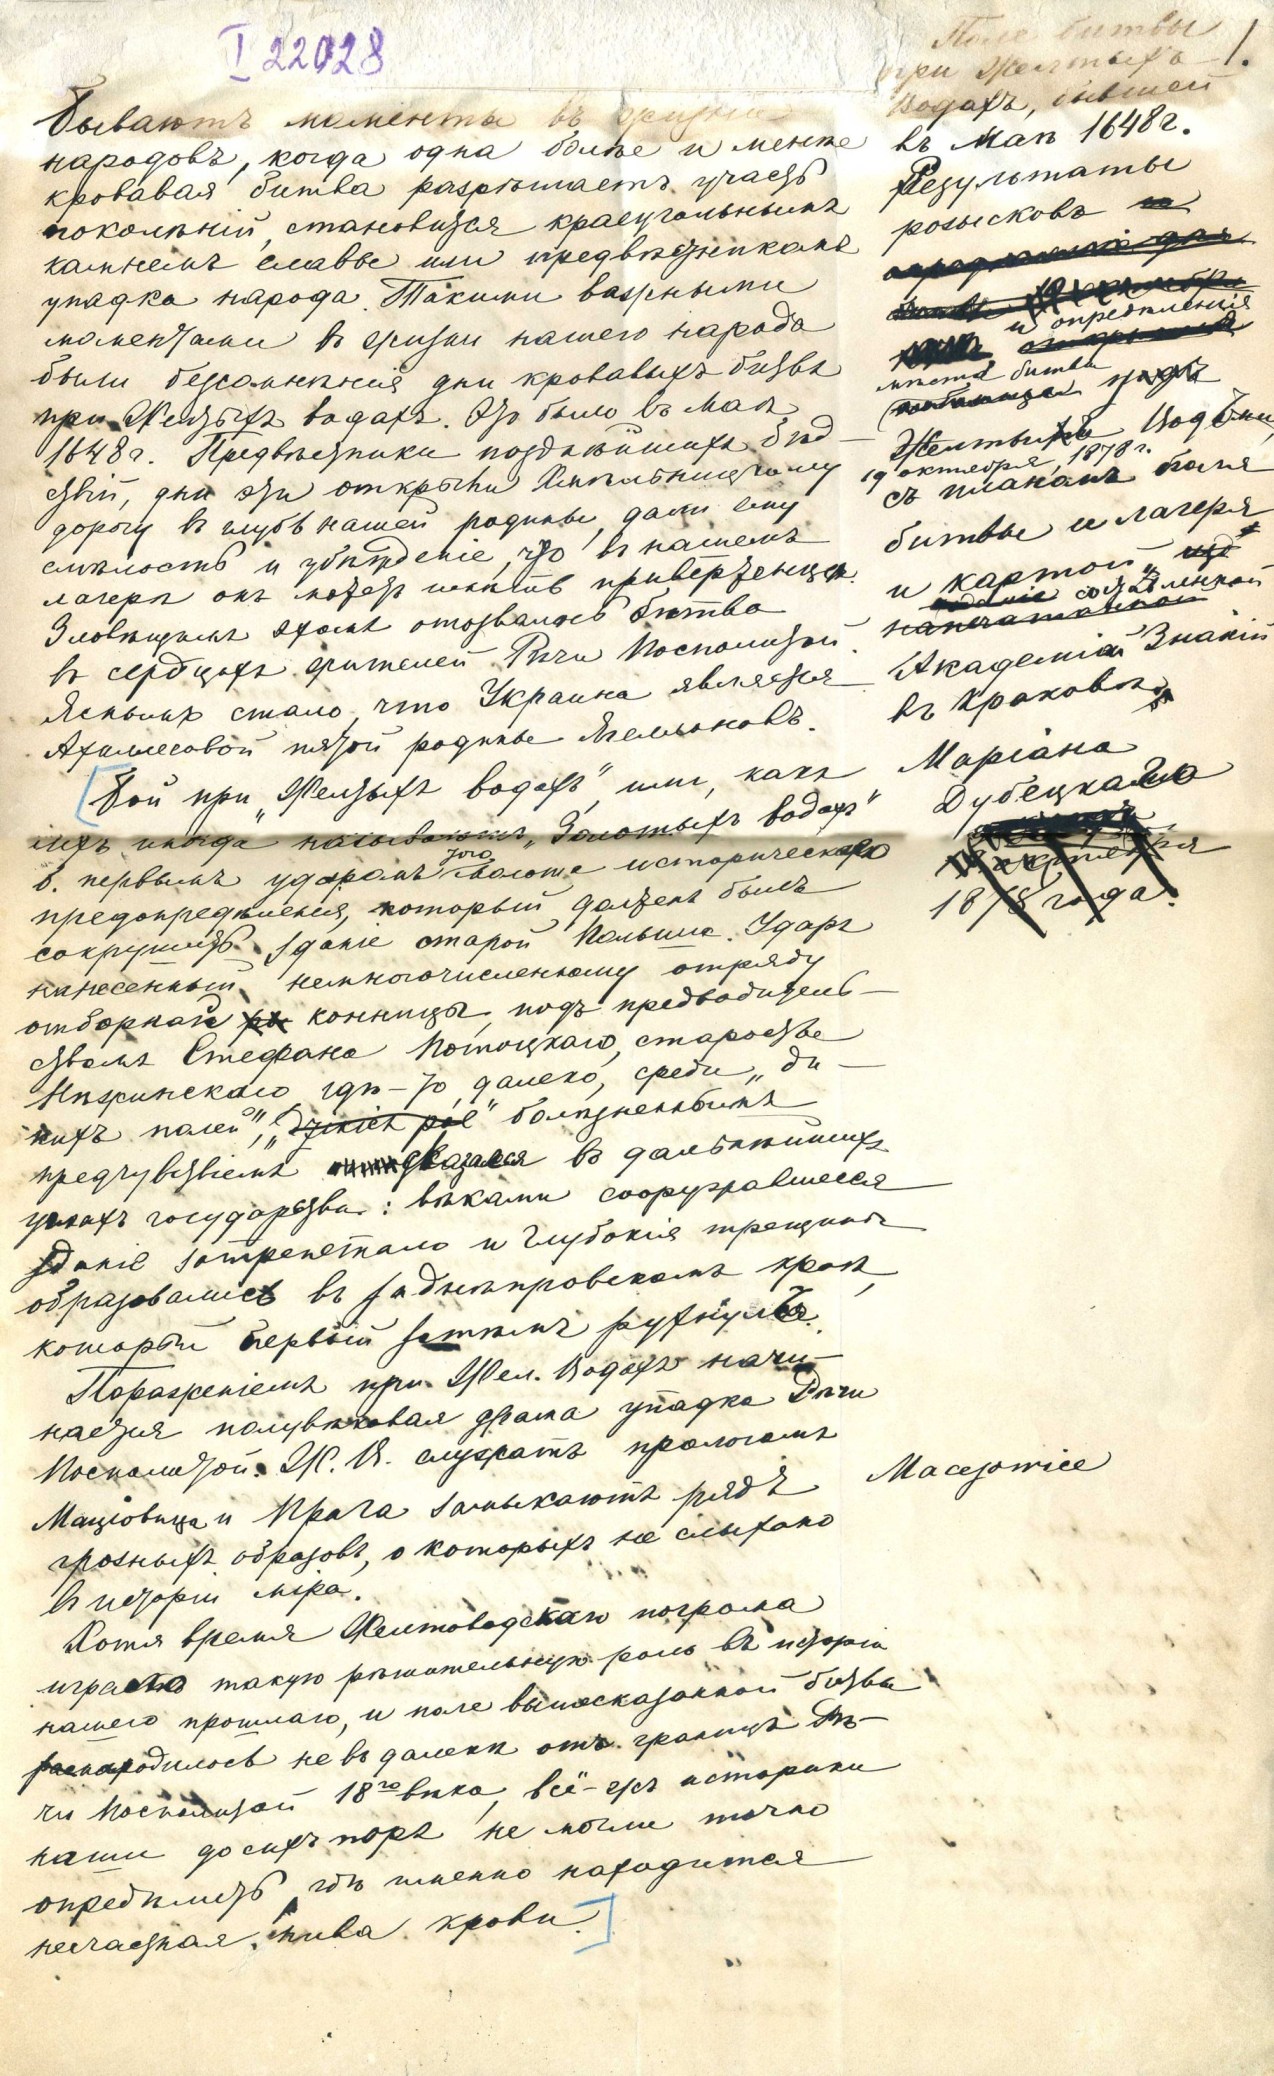 I 22028
1.
Поле битвы
при Желтыхъ
Водахъ, бывшей
въ Маѣ 1648 г.
Результаты
розысковъ
и опредѣленія
мѣста битвы
Желтыхъ Водъ
19 октября, 1878 г.
съ планомъ боля
битвы и лагеря
и картой,
составленной
напечатанной
Академіи Знаній
въ Краковѣ
Маріана
Дубецкаго
октября
1878 года.
Бываютъ моменты въ жизни
народовъ, когда одна болѣе и менѣе
кровавая битва разрѣшаетъ участь
поколѣній, становится краеугольнымъ
камнемъ славы или предвѣстникомъ
упадка народа. Такими важными
моментами въ жизни нашего народа
были безсомнѣнія дни кровавыхъ битвъ
при Желтыхъ водахъ. Это было въ Маѣ
1648 г. Предвѣстники позднѣйшихъ бѣд-
ствій, дни эти открыли Хмѣльницкому
дорогу въ глубь нашей родины, дали ему
смѣлость и убѣжденіе, что въ нашемъ
лагерѣ онъ можетъ имѣть приверженцевъ.
Зловѣщимъ эхомъ отозвалась битва
въ сердцахъ жителей Рѣчи Посполитой.
Яснымъ стало, что Украина является
Ахиллесовой пятой родины Ягеллоновъ.
Бой при „Желтыхъ водахъ", или, какъ
ихъ иногда называютъ, „Золотыхъ водахъ"
б. первымъ ударомъ того молота историческаго
предопредѣленія, который долженъ былъ
сокрушить зданіе старой Польши. Ударъ
нанесенный немногочисленному отряду
отборной конницы, подъ предводитель-
ствомъ Стефана Потоцкаго, старосты
Нѣжинскаго гдѣ-то, далеко, среди „ди-
кихъ полей", „Dzikich pól" болѣзненнымъ
предчувствіемъ отозвался въ дальнѣйшихъ
углахъ государства: вѣками сооружавшееся
зданіе затрепетало и глубокія трещины
образовались въ заднѣпровскомъ краѣ,
который первый затѣмъ рухнулъ.
Пораженіемъ при Жел. Водахъ начи-
нается полувѣковая драма упадка Рѣчи
Посполитой. Ж. В. служатъ прологомъ
Маціовица и Прага замыкаютъ рядъ
Maciejowice
грозныхъ образовъ, о которыхъ не слыхано
въ исторіи міра.
Хотя время Желтоводскаго погрома
играетъ такую рѣшительную роль въ исторіи
нашего прошлаго, и поле вышесказанной битвы
находилось не въ далекѣ отъ границъ Рѣ-
чи Посполитой 18го вѣка, всё-жъ историки
наши до сихъ поръ не могли точно
опредѣлить, гдѣ именно находится
несчастная нива крови.